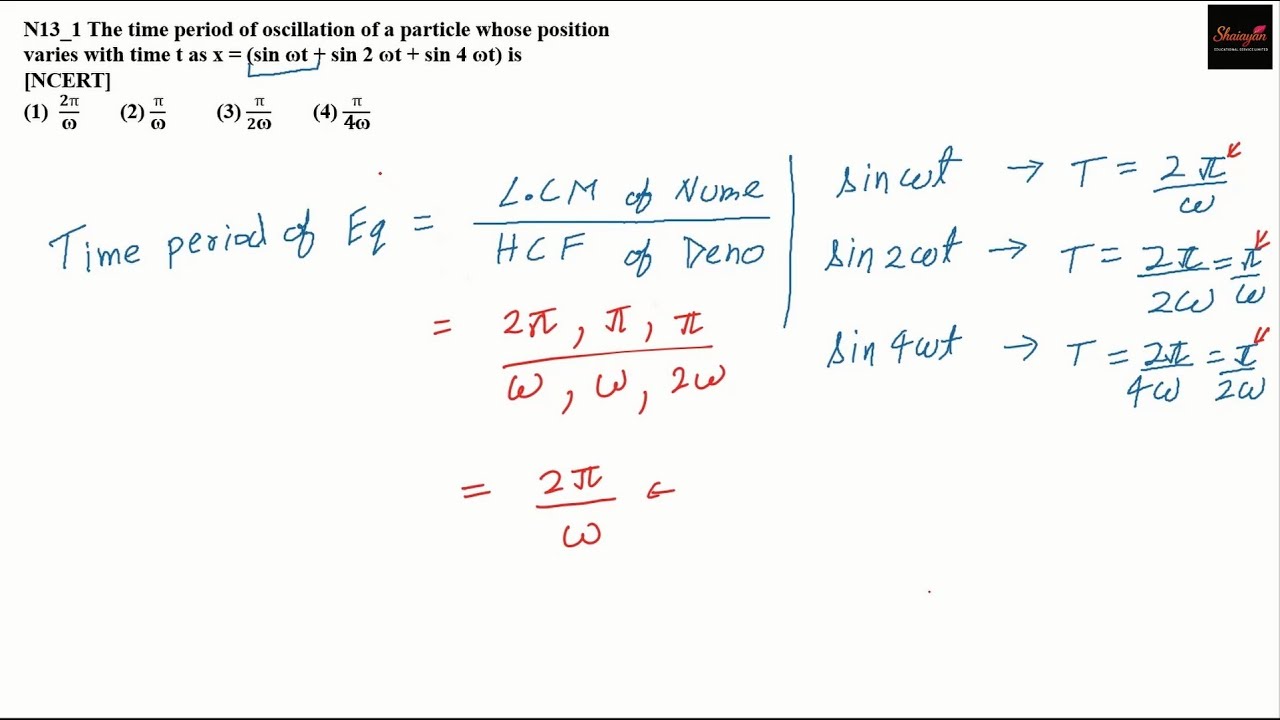 N13_1 The time period of oscillation of a particle whose position
varies with time t as x = (sin ωt + sin 2 ωt + sin 4 ωt) is
[NCERT]
(1) 2π/ω (2) π/ω (3) π/2ω (4) π/4ω
Shaiayan
EDUCATIONAL SERVICE LIMITED
Time period of Eq = L.CM of Nume / HCF of Deno
= 2π, π, π / ω, ω, 2ω
= 2π/ω ←
sin ωt → T = 2π/ω
sin 2ωt → T = 2π/2ω = π/ω
sin 4ωt → T = 2π/4ω = π/2ω